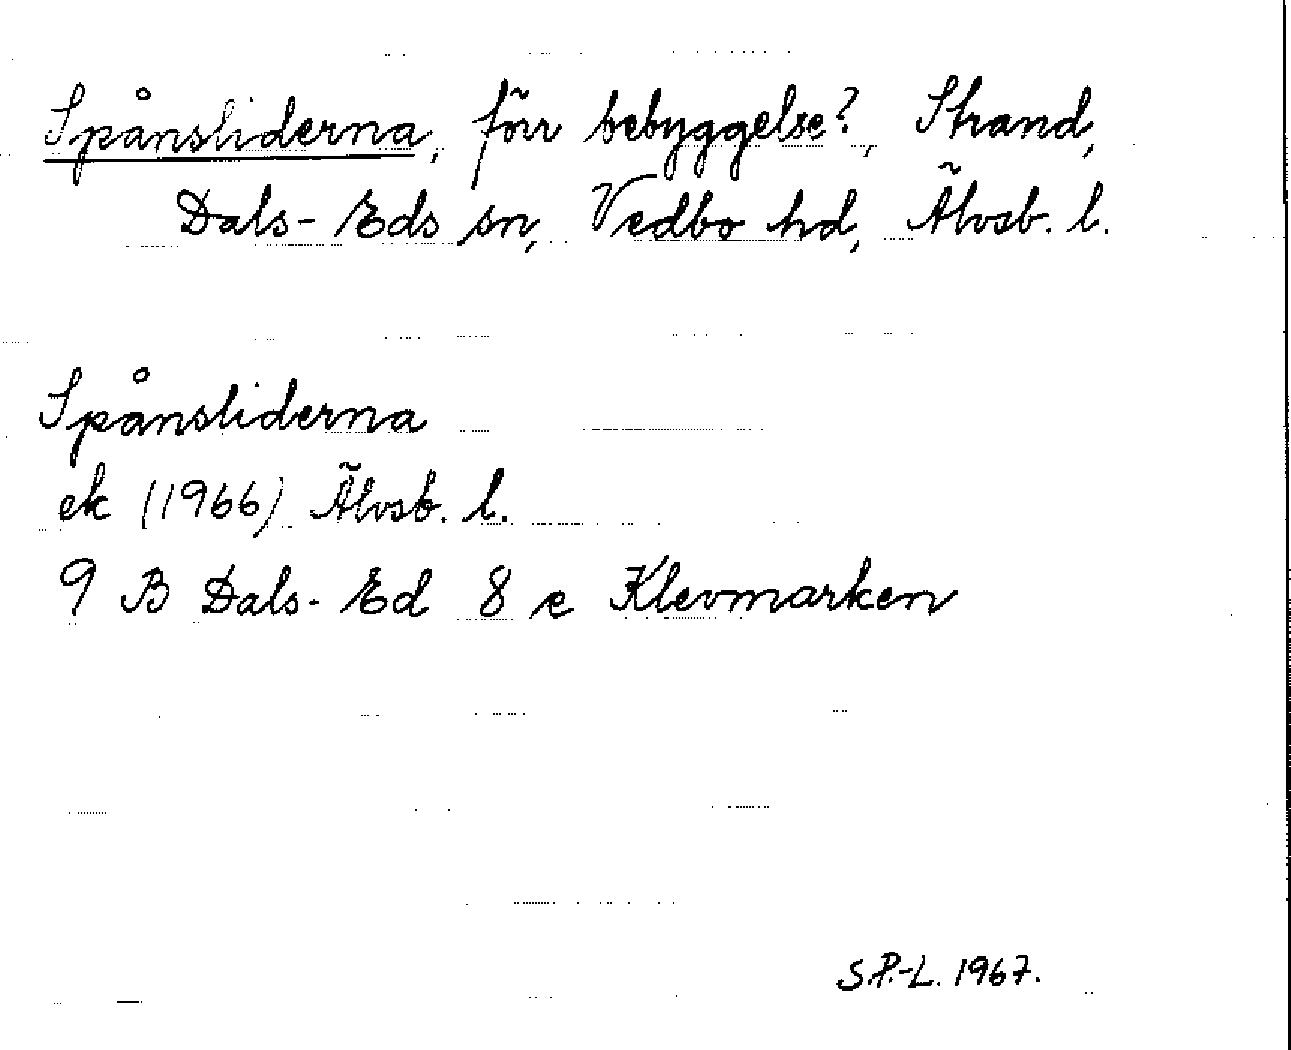 Spånsliderna, förr bebyggelse?, Strand,
Dals-Eds sn, Vedbo hd, Älvsb. l.
Spånsliderna
ek (1966) Älvsb. l.
9 B Dals-Ed 8 e Klevmarken
S.P.-L. 1967.